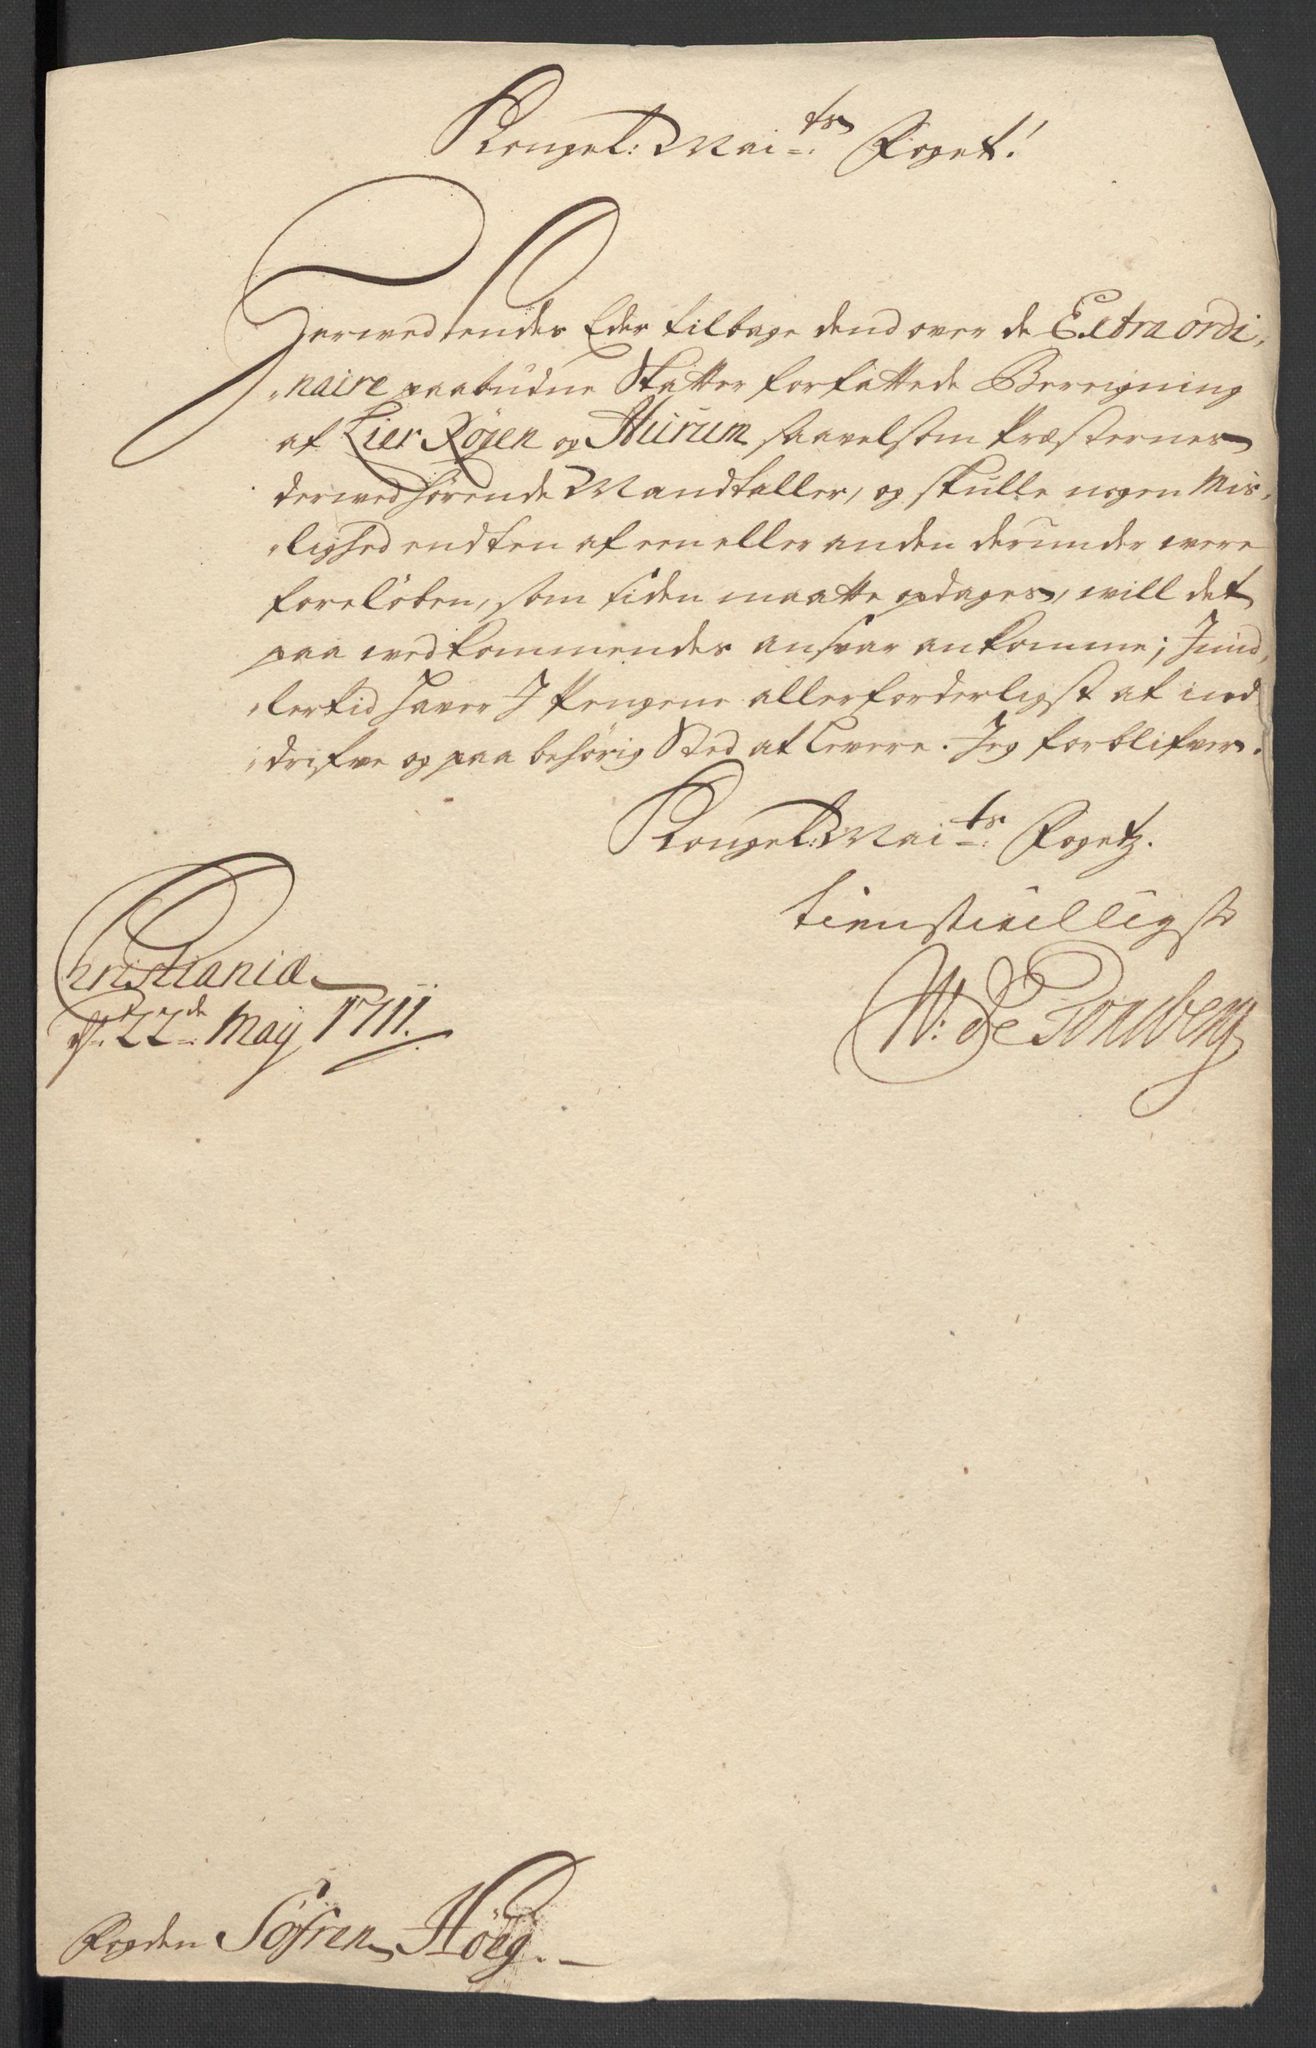 Kongel: Mai:ts Foget!
Herved sendes Eder tilbage dend over de Extraordi,
,naire paabudne Skatter forfattede Beregning
af Lier Røgen og Hurum saavelsom Præsternes
derved hørende Mandtaller, og skulle nogen Mis,
,lighed endten af een eller anden derunder være
foreløben, som siden maatte opdages, will det
paa vedkommendes ansvar ankomme; Imid,
,lertid haver I Pengene allerforderligst at ind
,drifve og paa behørig Sted at levere. Jeg forblifver.
Kongel: Mai:ts Fogetz.
tienstvilligst
W: de Tonsberg
Christiania
d: 22de May 1711.
Fogden Søfren Høeg.